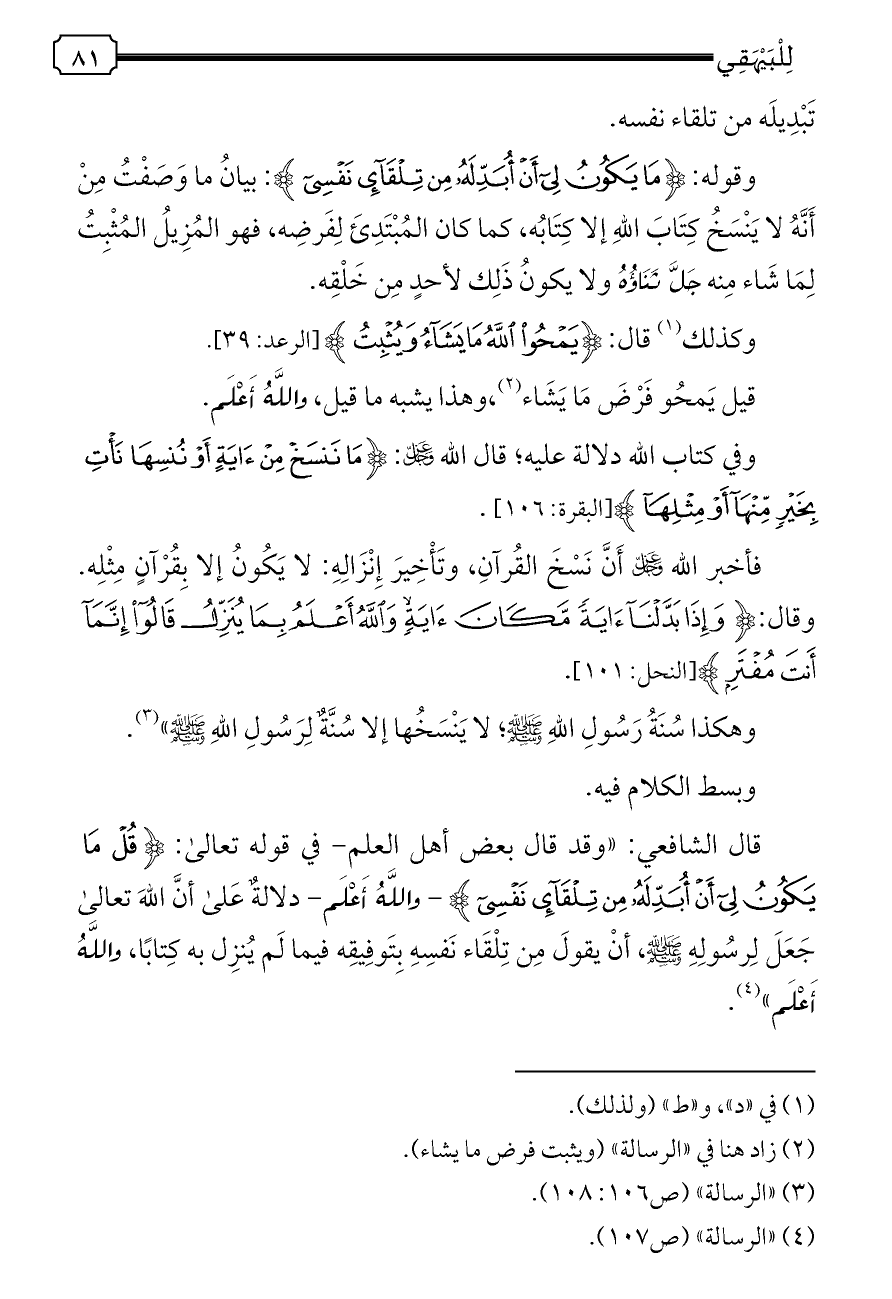 لِلْبَيْهَقِي ٨١
تَبْدِيلَه من تلقاء نفسه.
وقوله: ﴿مَا يَكُونُ لِىٓ أَنْ أُبَدِّلَهُۥ مِن تِلْقَآئِ نَفْسِىٓ﴾: بيانُ ما وَصَفْتُ مِنْ
أَنَّهُ لا يَنْسَخُ كِتَابَ اللهِ إلا كِتَابُه، كما كان المُبْتَدِئَ لِفَرضِه، فهو المُزِيلُ المُثْبِتُ
لِمَا شَاء مِنه جَلَّ ثَنَاؤُهُ ولا يكونُ ذَلِك لأحدٍ مِن خَلْقِه.
وكذلك(١) قال: ﴿يَمْحُوا۟ ٱللَّهُ مَا يَشَآءُ وَيُثْبِتُ﴾ [الرعد: ٣٩].
قيل يَمحُو فَرْضَ مَا يَشَاء(٢)، وهذا يشبه ما قيل، واللَّهُ أَعْلَم.
وفي كتاب الله دلالة عليه؛ قال الله عَزَّ وَجَلَّ: ﴿مَا نَنسَخْ مِنْ ءَايَةٍ أَوْ نُنسِهَا نَأْتِ
بِخَيْرٍ مِّنْهَآ أَوْ مِثْلِهَآ﴾[البقرة: ١٠٦] .
فأخبر الله عَزَّ وَجَلَّ أَنَّ نَسْخَ القُرآنِ، وتَأْخِيرَ إِنْزَالِهِ: لا يَكُونُ إلا بِقُرْآنٍ مِثْلِه.
وقال:﴿وَإِذَا بَدَّلْنَآ ءَايَةً مَّكَانَ ءَايَةٍۙ وَٱللَّهُ أَعْلَمُ بِمَا يُنَزِّلُ قَالُوٓا۟ إِنَّمَآ
أَنتَ مُفْتَرٍۭ﴾[النحل: ١٠١].
وهكذا سُنَةُ رَسُولِ اللهِ ﷺ؛ لا يَنْسَخُها إلا سُنَّةٌ لِرَسُولِ اللهِ ﷺ»(٣).
وبسط الكلام فيه.
قال الشافعي: «وقد قال بعض أهل العلم- في قوله تعالىٰ: ﴿قُلْ مَا
يَكُونُ لِىٓ أَنْ أُبَدِّلَهُۥ مِن تِلْقَآئِ نَفْسِىٓ﴾ - واللَّهُ أَعْلَم- دلالةٌ عَلىٰ أنَّ اللهَ تعالىٰ
جَعَلَ لِرسُولِهِ ﷺ، أنْ يقولَ مِن تِلْقَاء نَفسِهِ بِتَوفِيقِه فيما لَم يُنزِل به كِتابًا، واللَّهُ
أَعْلَم»(٤).
(١) في «د»، و«ط» (ولذلك).
(٢) زاد هنا في «الرسالة» (ويثبت فرض ما يشاء).
(٣) «الرسالة» (ص١٠٦: ١٠٨).
(٤) «الرسالة» (ص١٠٧).